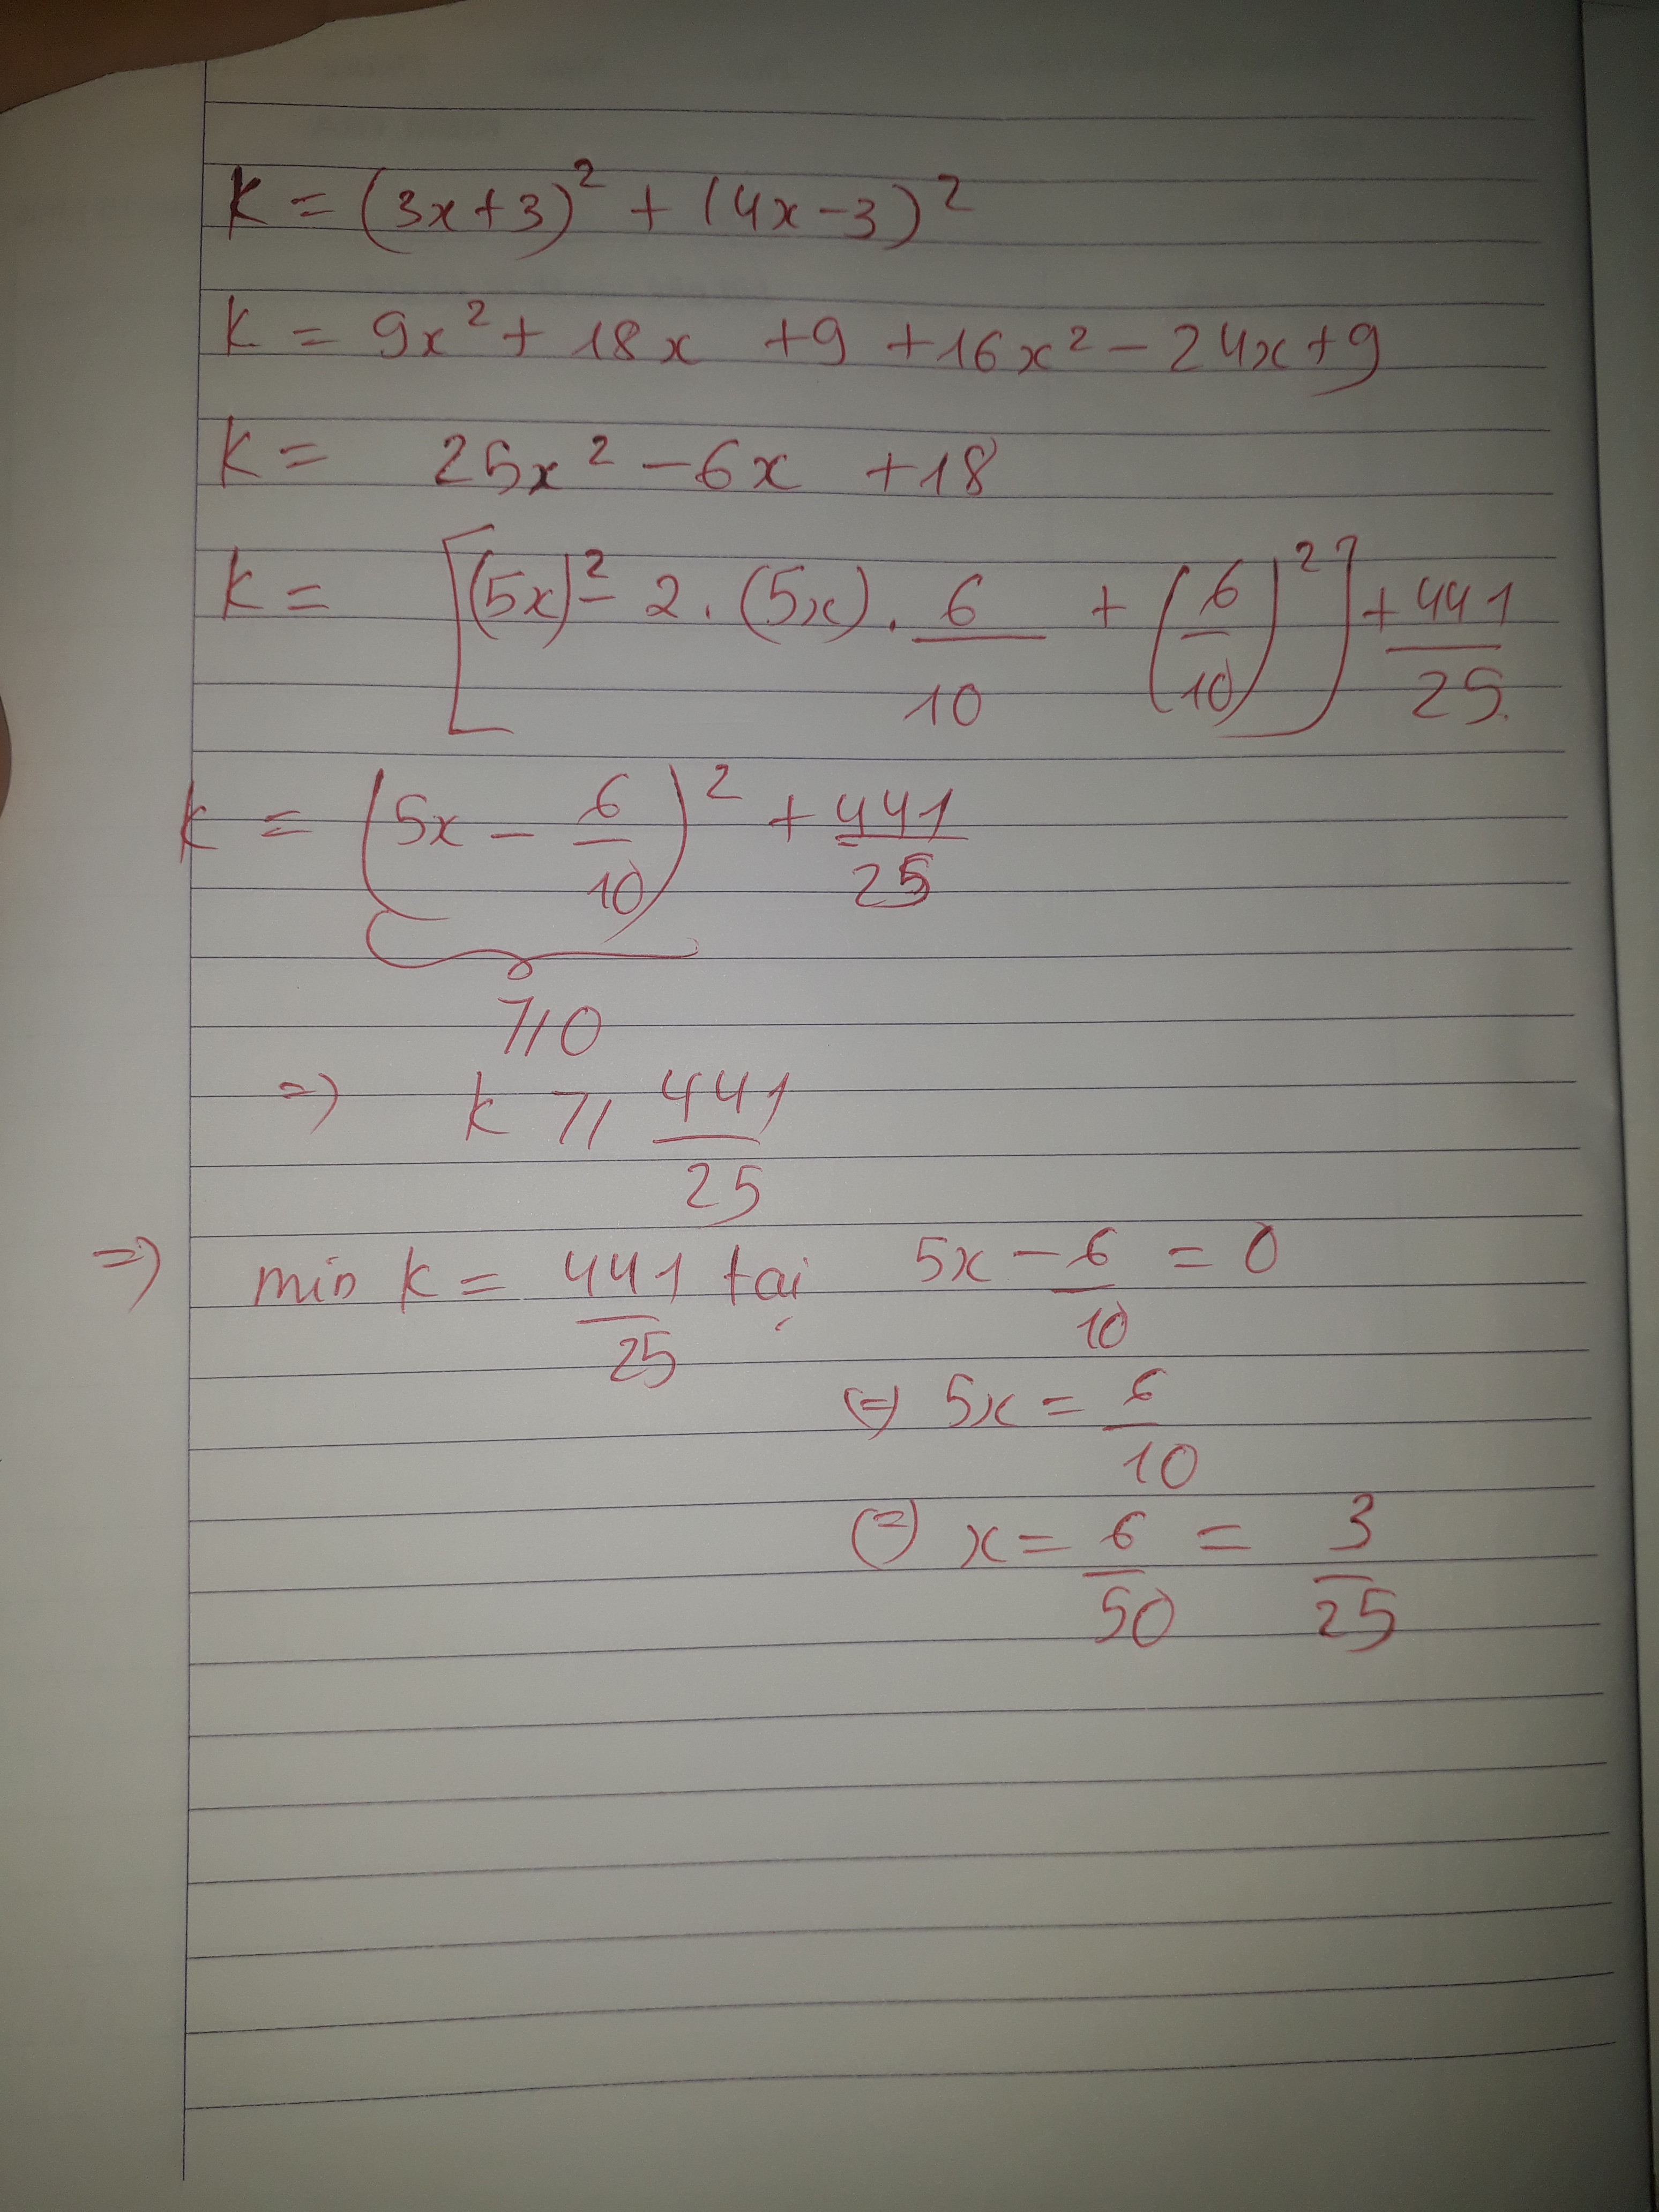 K = (3x+3)² + (4x-3)²
K = 9x² + 18x +9 +16x² - 24x+9
K = 25x² - 6x +18
K = [(5x)² - 2 . (5x) . 6/10 + (6/10)²] + 441/25
K = (5x - 6/10)² + 441/25
≥ 0
=> K ≥ 441/25
=> min K = 441/25 tại 5x - 6/10 = 0
<=> 5x = 6/10
<=> x = 6/50 = 3/25